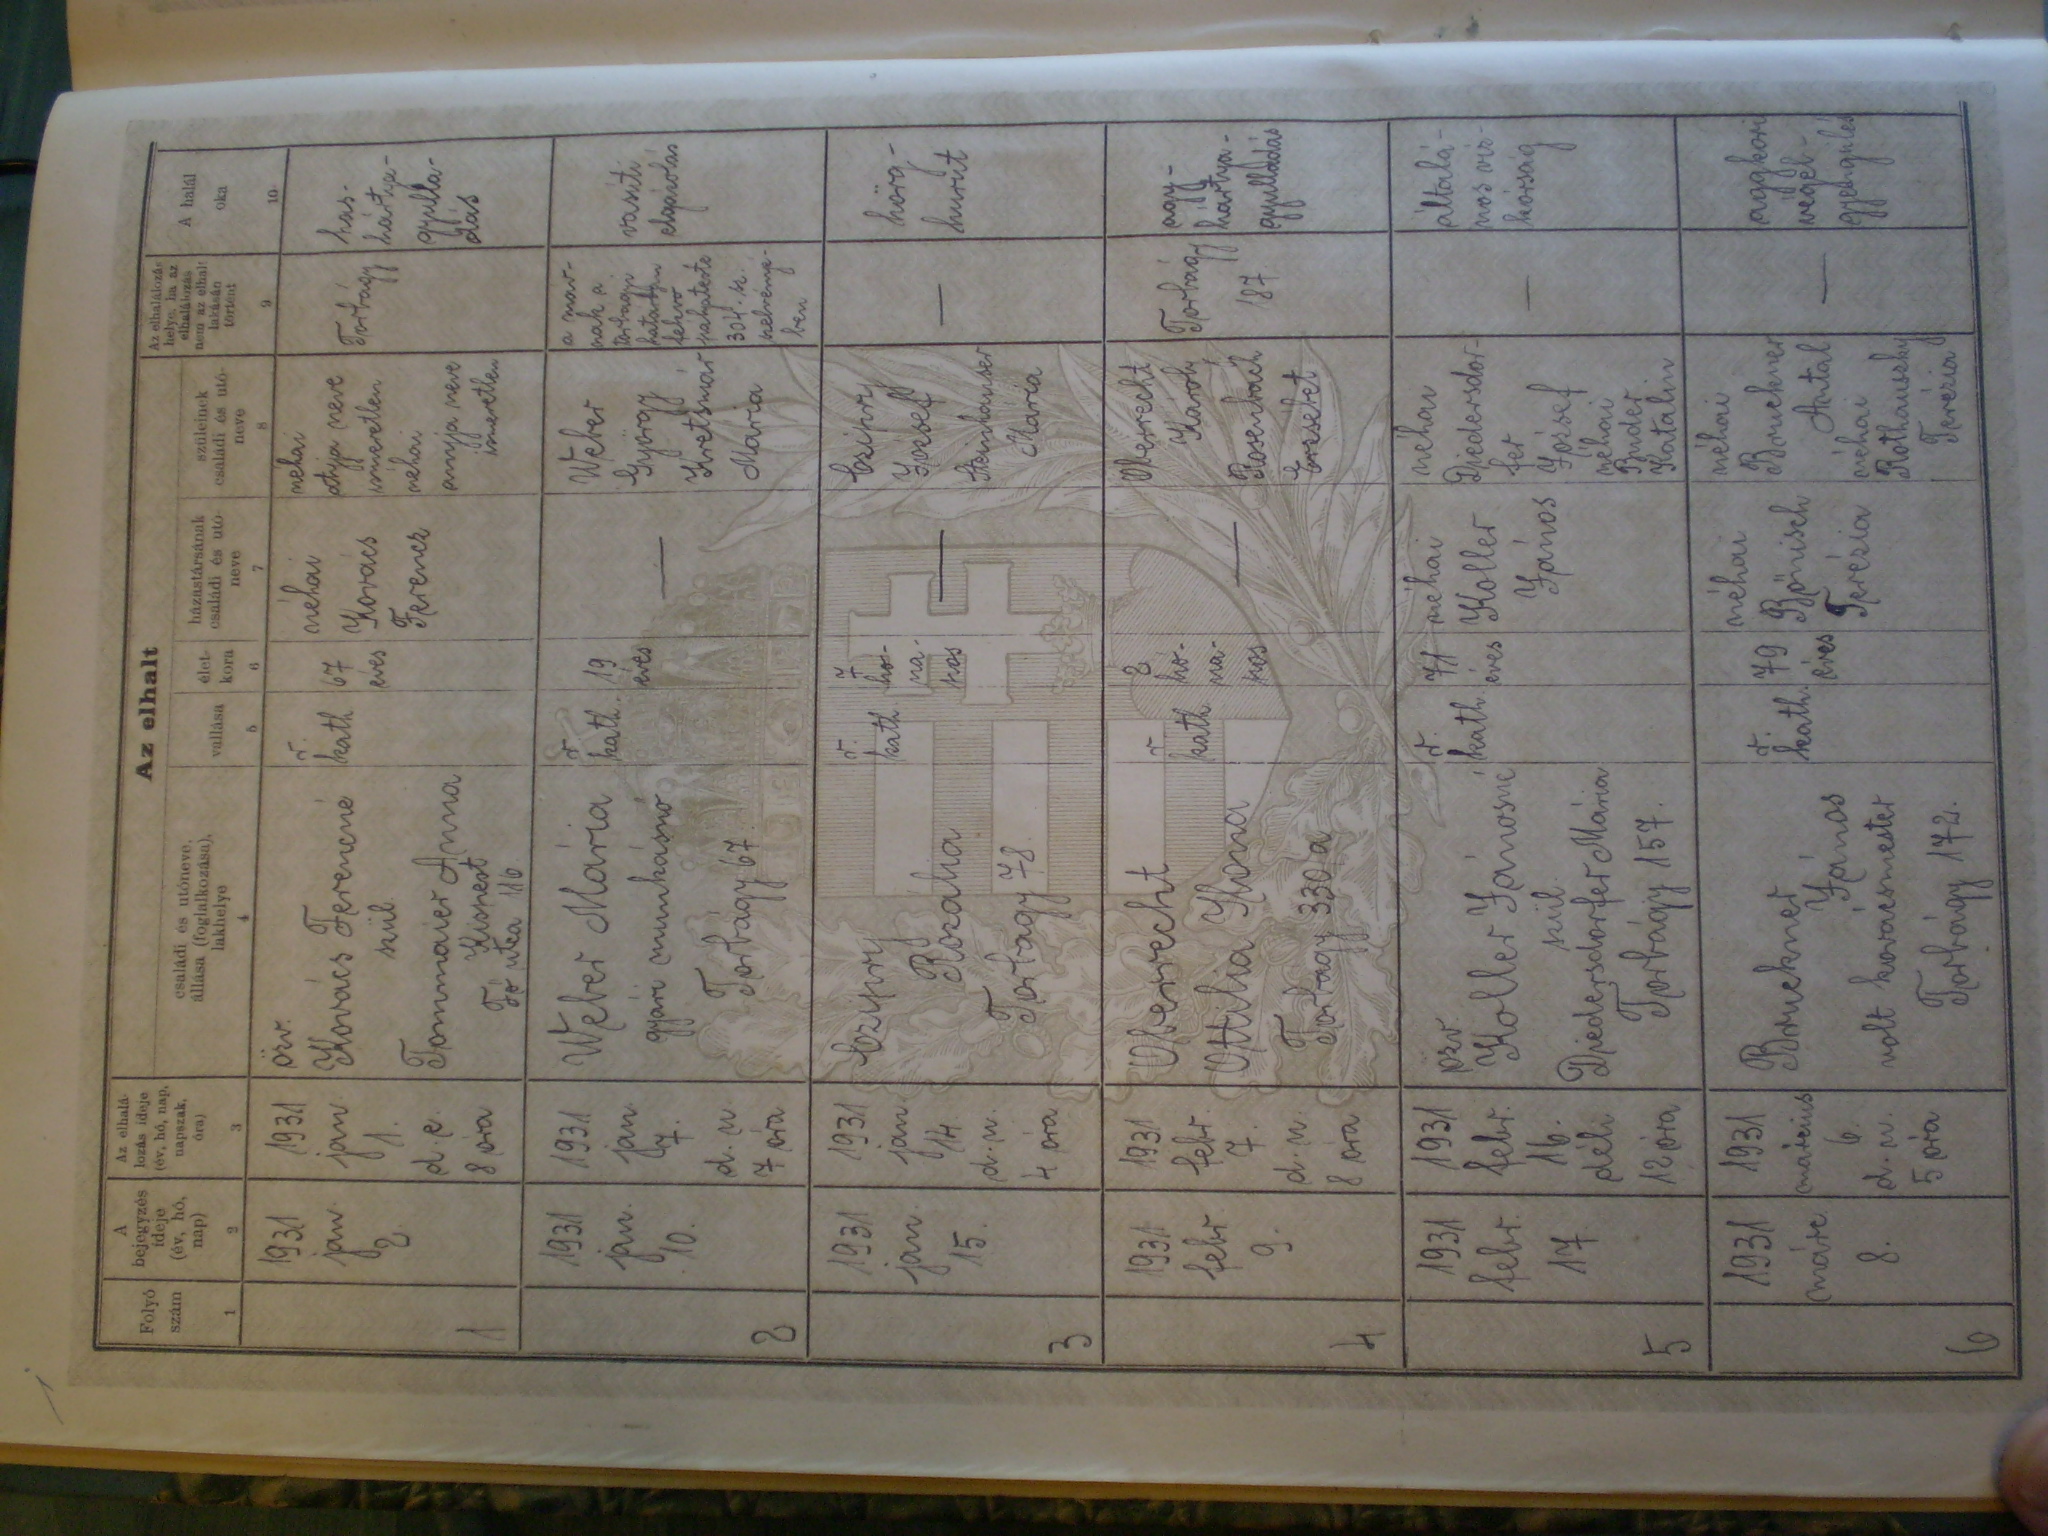 Az elhalt
Folyó
szám
A
bejegyzés
ideje
(év, hó,
nap)
Az elhalá-
lozás ideje
(év, hó, nap,
napszak,
óra)
családi és utóneve,
állása (foglalkozása),
lakhelye
vallása
élet-
kora
házastársának
családi és utó-
neve
szüleinek
családi és utó-
neve
Az elhalálozás
helye, ha az
elhalálozás
nem az elhalt
lakásán
történt
A halál
oka
1
2
3
4
5
6
7
8
9
10
1
1931
jan.
2.
1931
jan.
1.
d. e.
8 óra
özv.
Kovács Ferencné
szül.
Tommaier Anna
Kispest
Fő utca 116
r.
kath
67
éves
néhai
Kovács
Ferencz
néhai
atyja neve
ismeretlen
néhai
anyja neve
ismeretlen
Torbágy
has-
hártya-
gyulla-
dás
2
1931
jan.
10.
1931
jan.
7.
d. u.
7 óra
Weber Mária
gyári munkásnő
Torbágy 67.
r.
kath.
19
éves
—
Weber
György
Kretsmár
Mária
a máv-
nak a
torbágyi
határban
fekvő
pályateste
304. sz.
szelvényé-
ben
vasúti
elgázolás
3
1931
jan.
15.
1931
jan.
14.
d. u.
4 óra
Czifry
Rozália
Torbágy 78.
r.
kath.
7
hó-
na-
pos
—
Czifry
József
Steinhauser
Mária
—
hörg-
hurut
4
1931
febr.
9.
1931
febr.
7.
d. u.
8 óra
Oberrecht
Ottilia Ilona
Torbágy 330a
r.
kath.
8
hó-
na-
pos
—
Oberrecht
Károly
Rosenbach
Erzsébet
Torbágy
187.
agy-
hártya-
gyulladás
5
1931
febr.
17
1931
febr.
16.
déli
12 óra
özv.
Koller Jánosné
szül.
Diedersdorfer Mária
Torbágy 157.
r.
kath.
71
éves
néhai
Koller
János
néhai
Diedersdor-
fer
József
néhai
Binder
Katalin
—
általá-
nos víz-
kórság
6
1931
márc.
8.
1931
március
6.
d. u.
5 óra
Bruckner
János
volt kovácsmester
Torbágy 172.
r.
kath.
79
éves
néhai
Bönisch
Terézia
néhai
Bruckner
Antal
néhai
Rothauszky
Terézia
—
aggkori
végel-
gyengülés